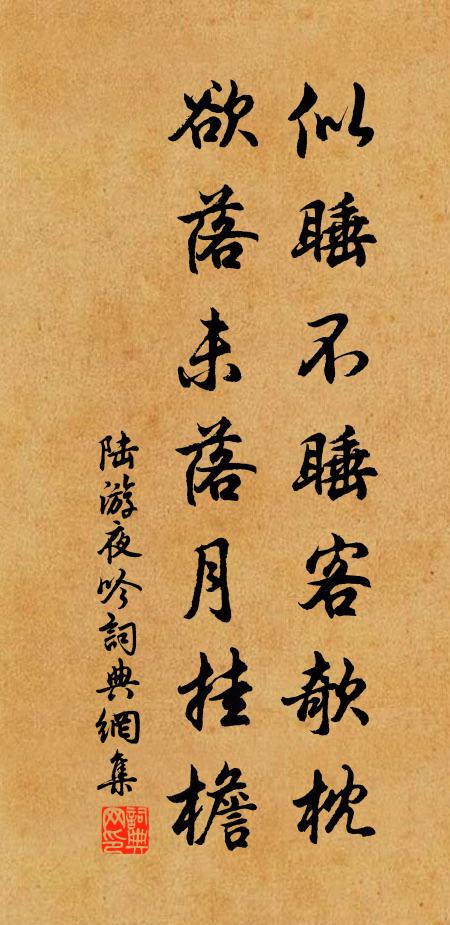 似睡不睡客欹枕
欲落未落月挂檐
陆游夜吟詞典網集
詞典
网印